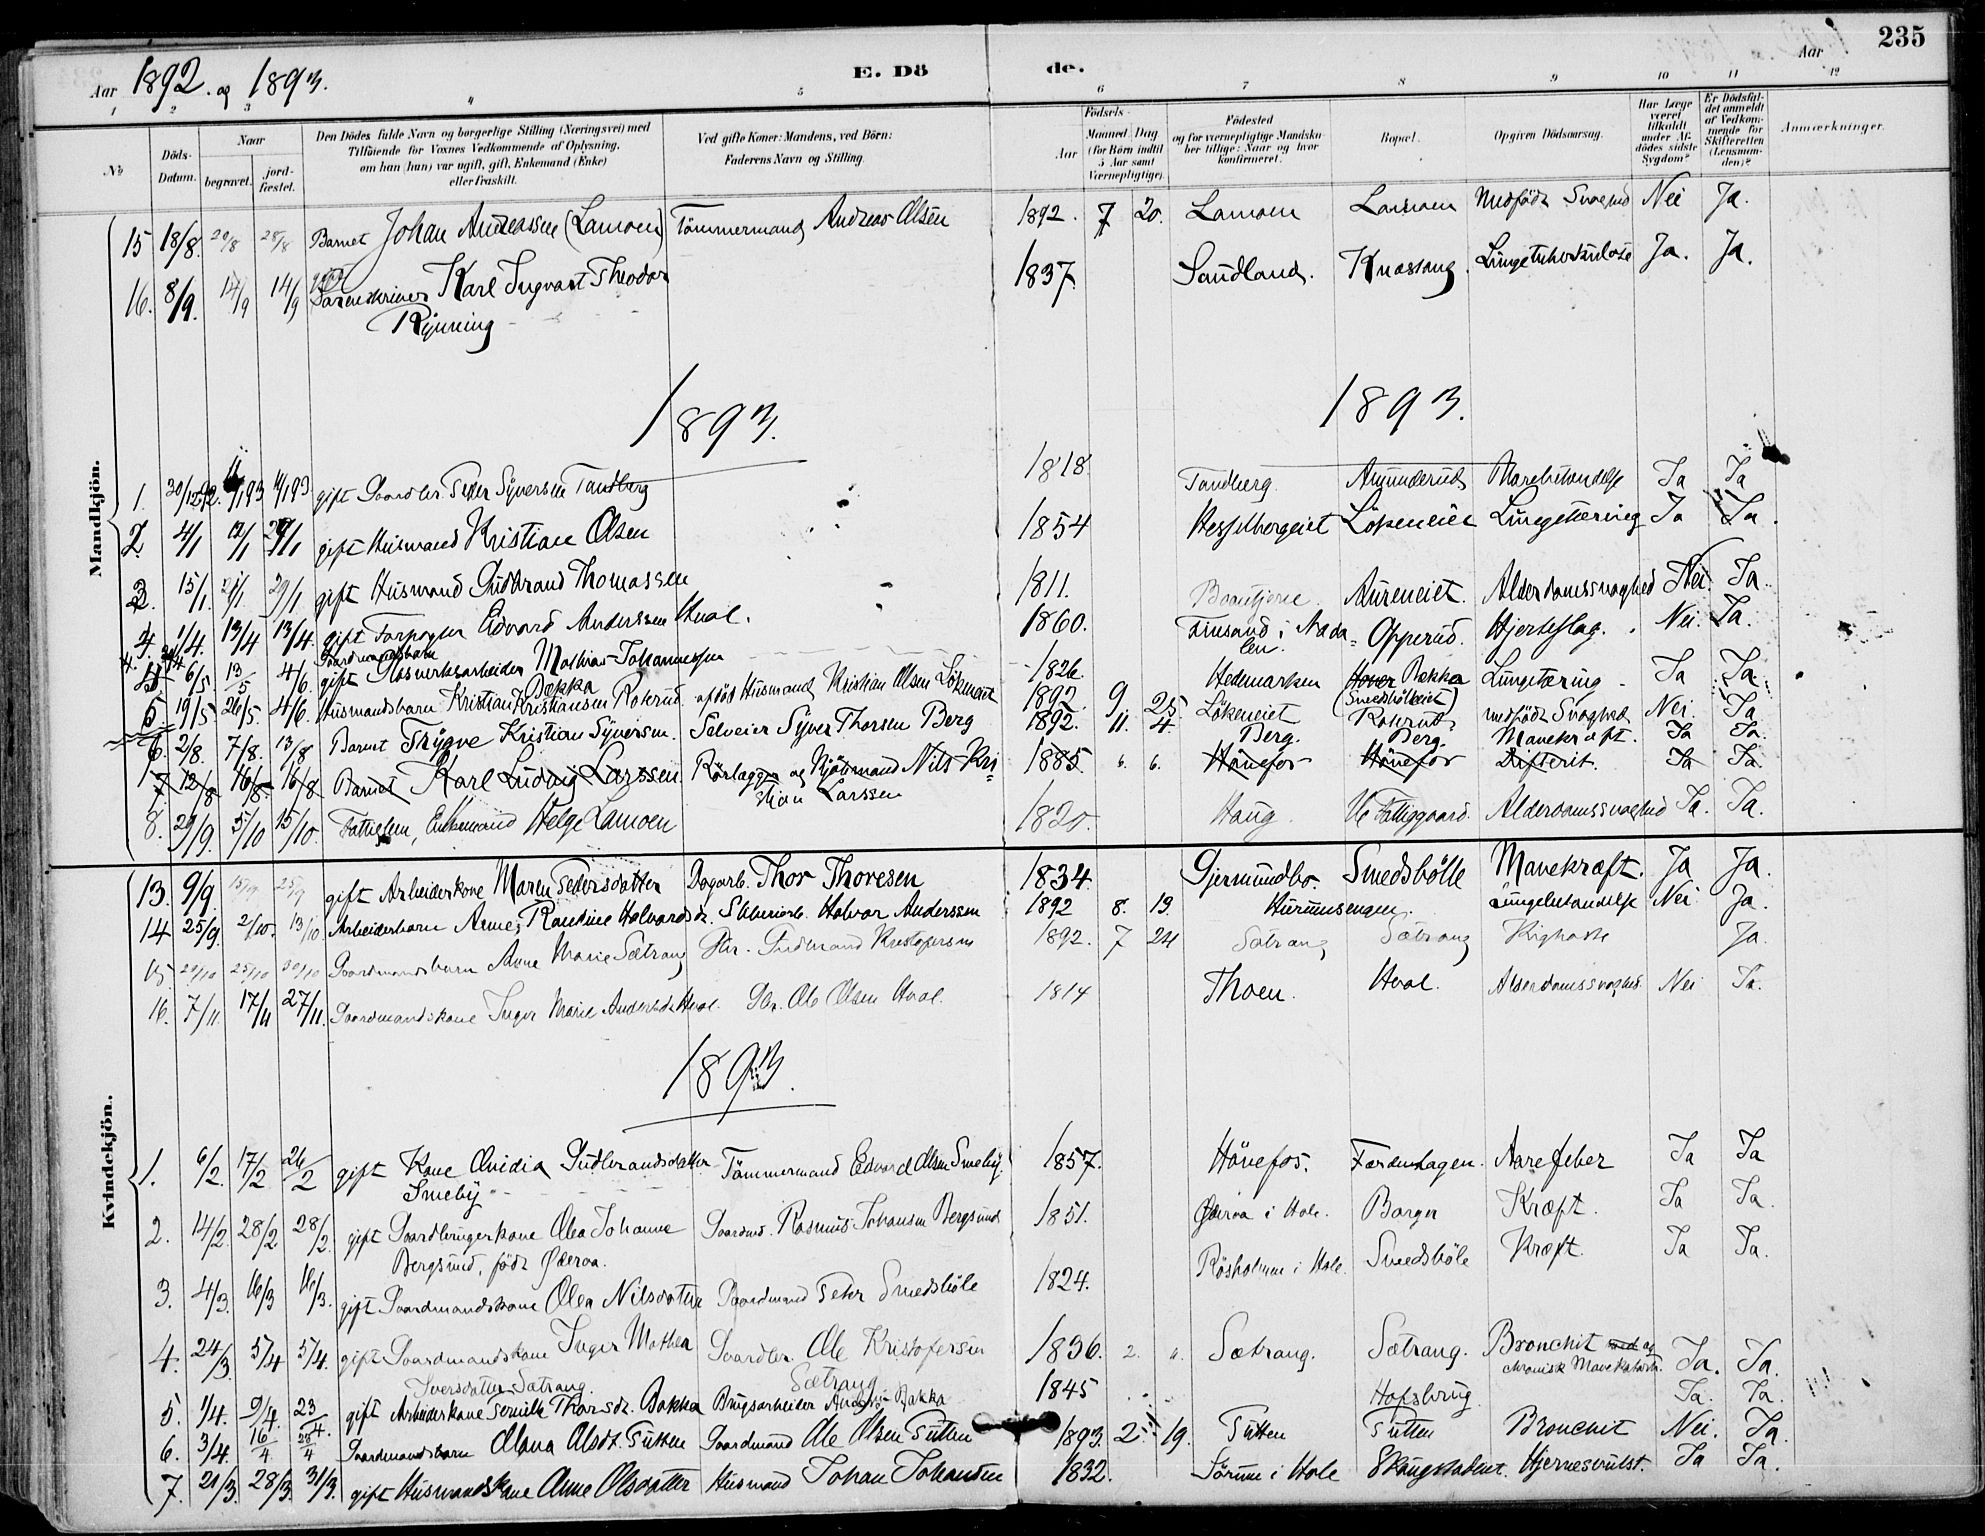 235
Aar 1892. og 1893.
E. Dö de.
Aar
1 2 3 4 5 6 7 8 9 10 11 12
No
Döds-Datum.
Naar
begravet.
jord-fæstet.
Den Dödes fulde Navn og borgerlige Stilling (Næringsvei) med
Tilföiende for Voxnes Vedkommende af Oplysning,
om han (hun) var ugift, gift, Enkemand (Enke)
eller fraskilt.
Ved gifte Koner: Mandens, ved Börn:
Faderens Navn og Stilling.
Födsels-
Aar
Maaned (for Börn indtil 5 Aar samt Værnepligtige).
Dag
Födested
og for værnepligtige Mandskaber tillige: Naar og hvor konfirmeret.
Bopæl.
Opgiven Dödsaarsag.
Har Læge været tilkaldt under Afdödes sidste Sygdom?
Er Dödsfaldet anmeldt af Vedkommende for Skifteretten (Lensmanden)?
Anmærkninger.
Mandkjön.
15 18/8. 20/8 28/8 Barnet Johan Andreassen (Lamoen) Tömmermand Andreas Olsen 1892. 7 20. Lamoen Lamoen Medfödt Svaghed Nei Ja.
16. 8/9. 14/9 14/9 Karl Ingvart Theodor 1837 Sandland. Knæstang. Lungetuberkulose Ja. Ja.
Rynning
1893. 1893.
1. 30/12 92. 14/1 93 gift Gaardbr. Peder Syversen Tandberg 1818 Tandberg. Amunderud Marvbetændelse Ja Ja
2. 4/1 12/1 29/1 gift Husmand Kristian Olsen 1854 Hesselbergeiet Lökeneiet Lungetæring Ja Ja.
3. 15/1. 21/1. 29/1 gift Husmand Gudbrand Thomassen 1811. Aureneiet. Alderdomssvaghed Nei. Ja.
4. 1/4. 13/4 13/4. gift Edvard Anderssen Hval. 1860. i Aada- Opperud. Hjerteslag. Nei. Ja.
len.
6/5. 13/5 4/6. gift Glasverksarbeider Mathias Johannessen 1826. Hedemarken Bakka Lungetæring Ja Ja.
Bakka (Smedsböleiet)
5. 19/5 26/5. 4/6. Husmandsbarn Kristian Kristiansen Rokerud afdöd Husmand Kristian Olsen Lökeneiet 1892. 9. 25. Lökeneiet Rokerud medfödt Svaghed Nei. Ja
6. 2/8. 7/8. 13/8 Barnet Trygve Kristian Syversen. Selveier Syver Thorsen Berg 1892. 11. 4. Berg. Berg. Mavekræft. Ja Ja.
7. 12/8 16/8. 16/8 Barnet Karl Ludvig Larssen Rörlægger og Nils Kri- 1885. 6. 6. Hönefos Hönefos Difterit. Ja Ja.
stian Larssen
8. 29/9. 5/10 15/10. Fattiglem, Enkemand Helge Lamoen 1820. Haug. Fattiggaard. Alderdomssvaghed Ja. Ja.
Kvindekjön.
13. 9/9. 15/9 25/9 gift Arbeiderkone Maren Pedersdatter Dagarb. Thor Thoresen 1834. Gjermundbo. Smedsbölle Mavekræft. Ja Ja.
14 25/9. 2/10. 13/10 Arbeiderbarn Anne Randine Halvardsdr. Halvor Anderssen 1892 8. 13. Hurumsengen. Lungebetændelse Nei Ja.
15. 20/10 25/10 30/10 Gaardmandsbarn Anne Marie Sætrang Gbr. Gudbrand Kristofersen 1892. 7 24 Sætrang Sætrang Kighoste Ja.
16. 7/11. 17/11 27/11. Gaardmandskone Inger Marie Andersdr. Hval. Gbr. Ole Olsen Hval. 1814 Thoen. Hval. Alderdomssvaghed. Nei Ja.
1893.
1. 6/2. 17/2 26/2 gift Kone Ovidia Gudbrandsdatter Tömmermand Edvard Olsen Smeby. 1857. Hönefos. Færdenhagen. Aarefeber Ja Ja
Smeby
2. 14/2. 28/2 28/2. gift Gaardbrugerkone Olea Johanne Gaardmd. Rasmus Johansen Bergsund 1851. Gjerva i Hole. Borger Kræft. Ja Ja.
Bergsund, född Gjerva.
3. 4/3. 16/3 16/3. gift Gaardmandskone Olea Nilsdatter Gaardmand Peder Smedsböle 1824. Rösholmen i Hole. Smedsböle Kræft. Ja Ja.
4. 24/3. 5/4 5/4. gift Gaardmandskone Inger Mathea Gaardbr. Ole Kristofersen 1836. 2. Sætrang. Sætrang. Bronchit og Ja. Ja.
Iversdatter Sætrang. Sætrang chronisk Mavekatarrh.
5. 1/4. 9/4. 23/4. gift Arbeiderkone Pernille Thorsdr. Bakka Brugsarbeider Bakka 1845 Hofsbrug Ja. Ja.
6. 3/4. 16/4 23/4 Gaardmandsbarn Olava Olsdr. Putten Gaardmand Ole Olsen Putten 1893. 2. 19. Putten Putten Bronchit Nei. Ja.
7. 21/3. 28/3. 31/3. gift Husmandskone Anne Olsdatter Husmand Johan Johansen 1832. Sörum i Hole Hjernesvulst. Ja Ja.